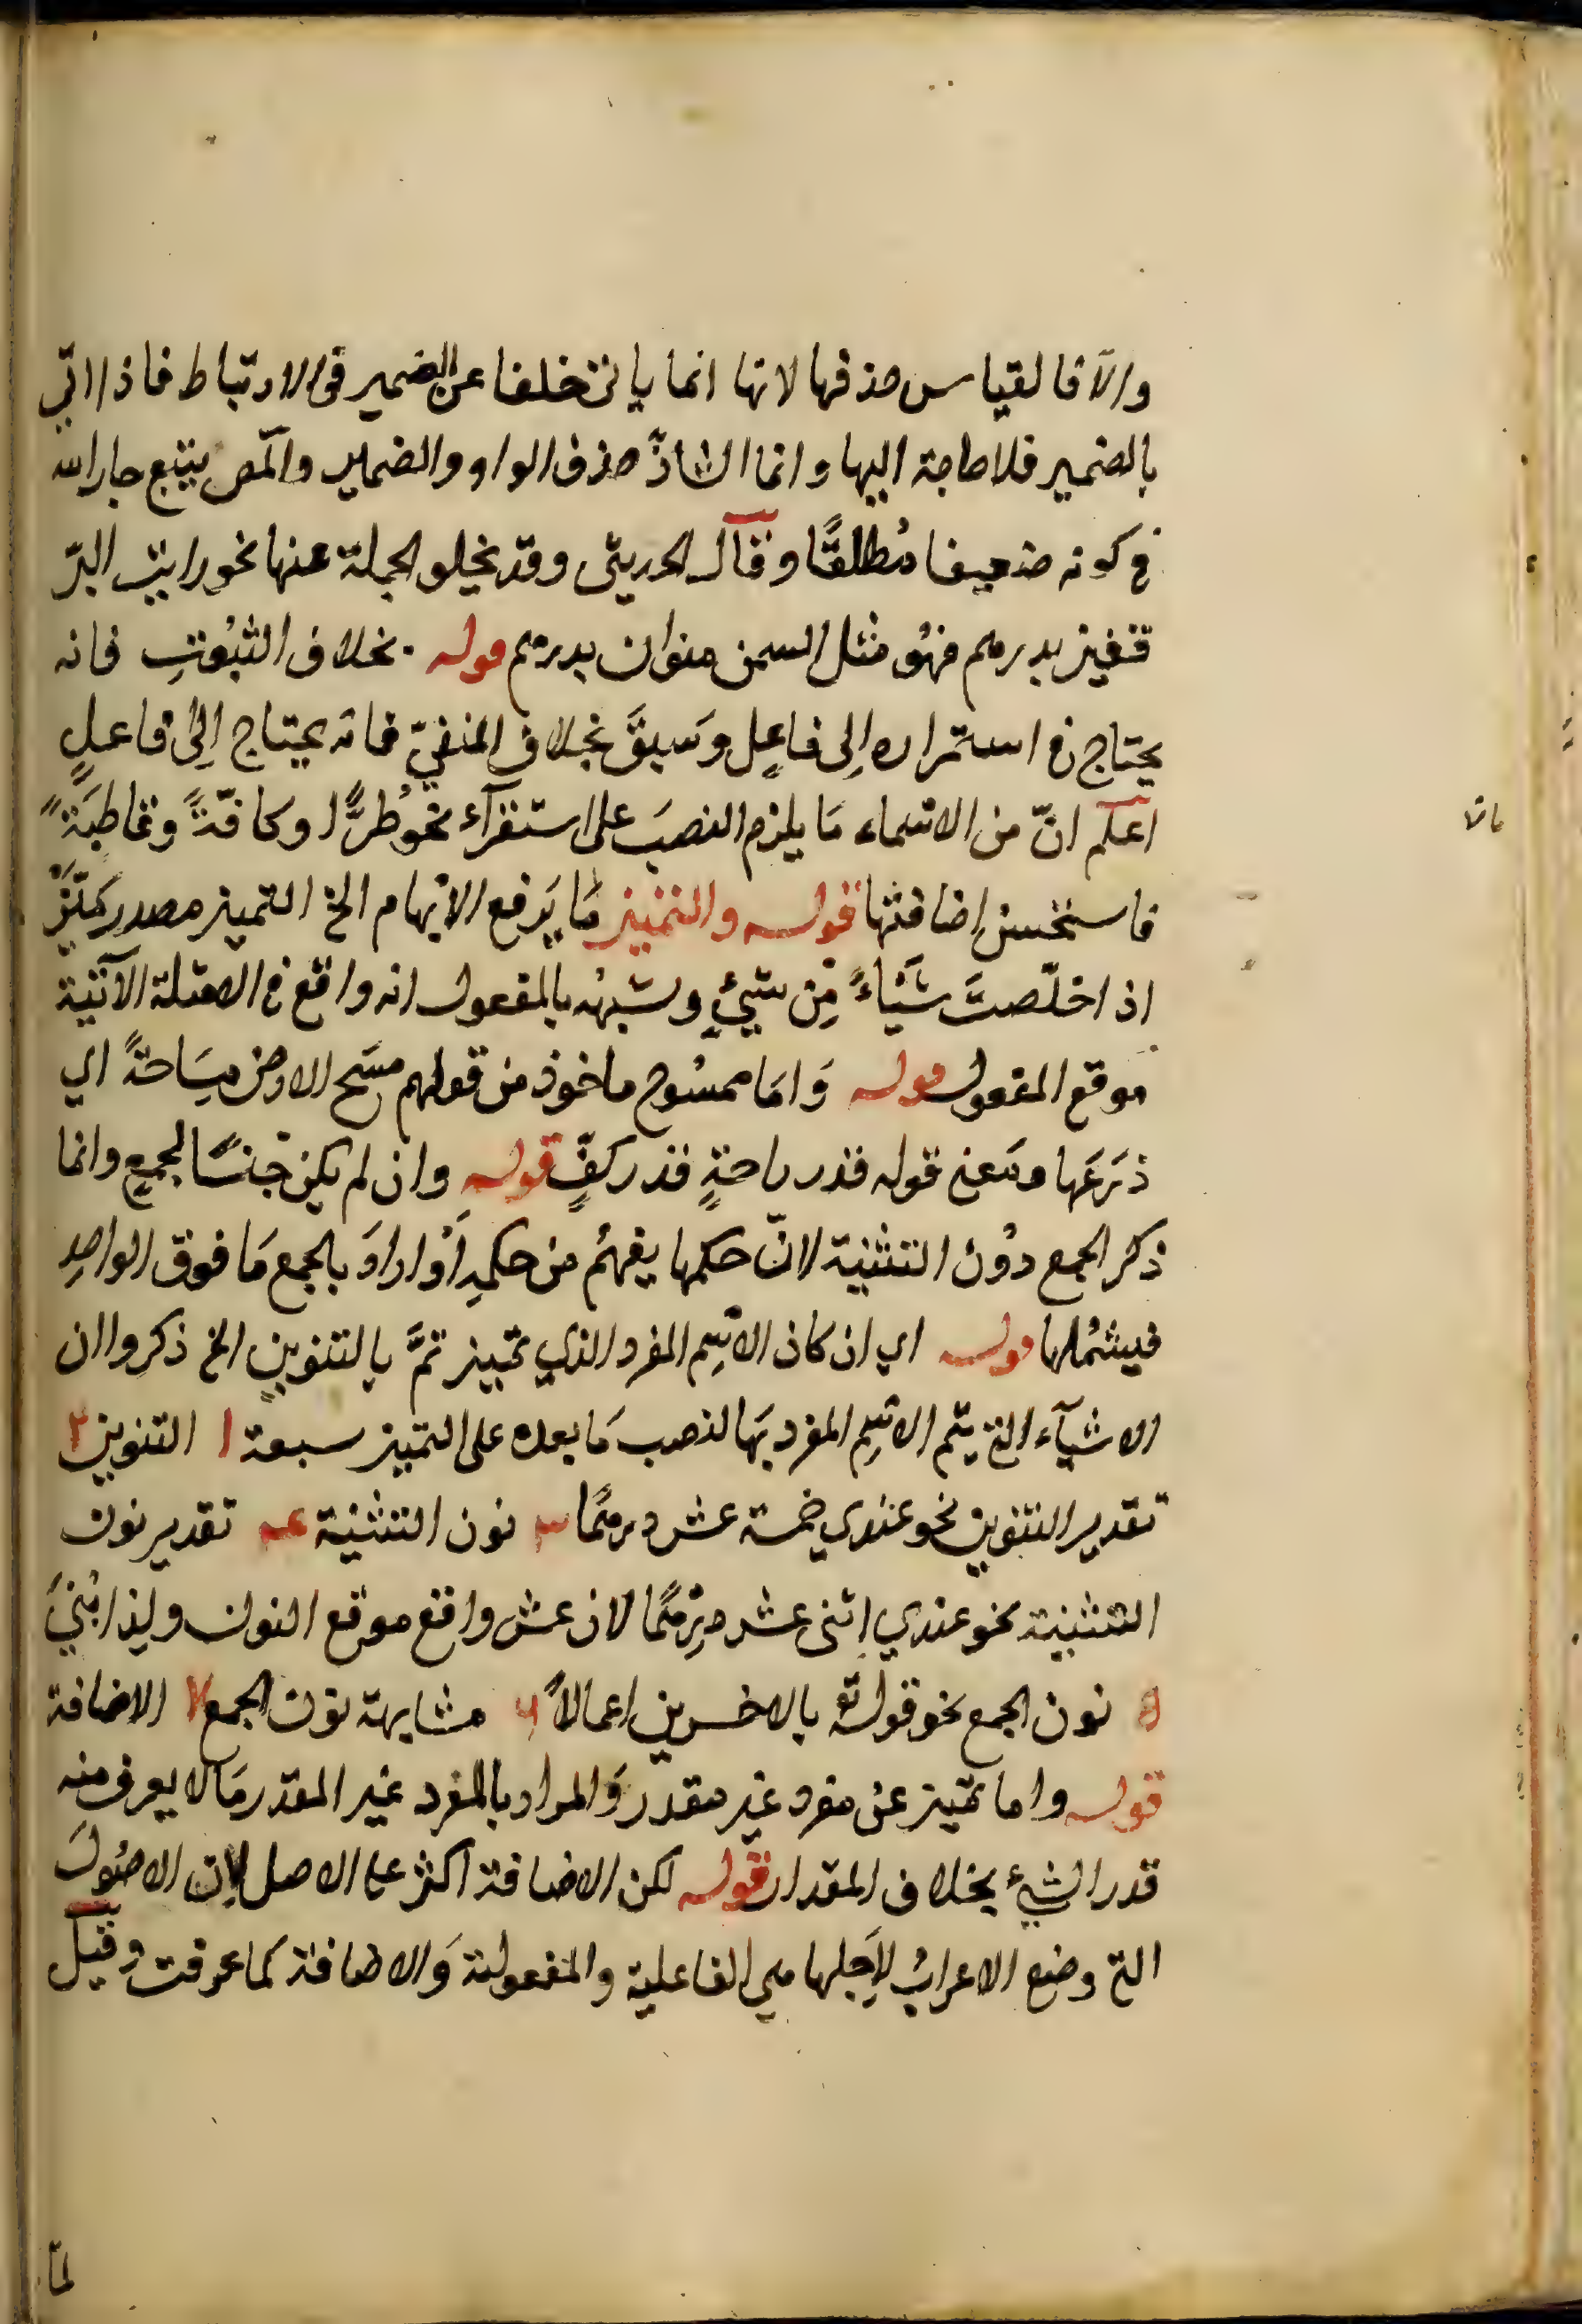 والّا فالقياس حذفها لانها انما ياتى خلفا عن الضمير فى الارتباط فاذا اتى
بالضمير فلا حاجة اليها وانما الشاذّ حذف الواو والضمير والمص يتبع جار الله
فى كونه ضعيفا مُطلقًا وقال الحديثى وقد يخلو الجملة عنها نحو رايت البرّ
قفيز بدرهم فهُو مثل السمن منوان بدرهم قوله . بخلاف الثبُوتِ فانه
يحتاج فى استمراره إلى فاعلٍ وسبقَ بخلاف المنفيّ فانه يحتاج إلى فاعلٍ
اعلم انّ من الاسماء مَا يلزم النصبَ على استقرآء نحو طُرًّا وكافّةً وقاطبَةً
فاستحسن إضافتها قوله والتمييز مَا يَرفع الابهام الخ التمييز مصدر مَيّزَ
اذا خلّصتَ شَيْاءً مِن شيئٍ وشبهُه بالمفعول انه واقع فى الامثلة الآتية
موقع المفعول قوله وَامَا ممسُوح ماخوذ من قولهم مسَح الارض مِسَاحةً اي
ذرَعَها ومَعنى قوله قدر راحةٍ قدر كفٍّ قوله وان لم يكن جنسًا لجمعٍ وانما
ذكر الجمع دوُن التثنية لانّ حكمها يفهمُ من حكمهِ أَوْ ارادَ بالجمع مَا فوق الواحدِ
فيشمُلها قوله اي ان كان الاسِم المفرد الذي تمييز تمَّ بالتنوين الخ ذكروا ان
الاشيآء التى يتم الاسِم المفرد بهَا لنصب مَا بعده على التمييز سبعة ١ التنوين ٢
تقدير التنوين نحو عندي خمسة عشر درهمًا ٣ نون التثنية ٤ تقدير نون
التثنية نحو عندي اثنى عشر دِرْهمًا لان عشر واقع موقع النون ولذا بُنيَ
٥ نون الجمع نحو قوله تع بالاخسرين اعمالاً ٦ مشابهة نون الجمع ٧ الاضافة
قوله واما تمييز عن مفرد غير مقدر وَالمراد بالمفرد غير المقدر مَا لا يعرف منه
قدر الشيء بخلاف المقدار قوله لكن الاضافة اكثر على الاصل لان الاصُولَ
التى وضع الاعرابُ لاَجلها هى الفاعلية والمفعولية وَالاضافة كما عرفت وقيل
لمّا